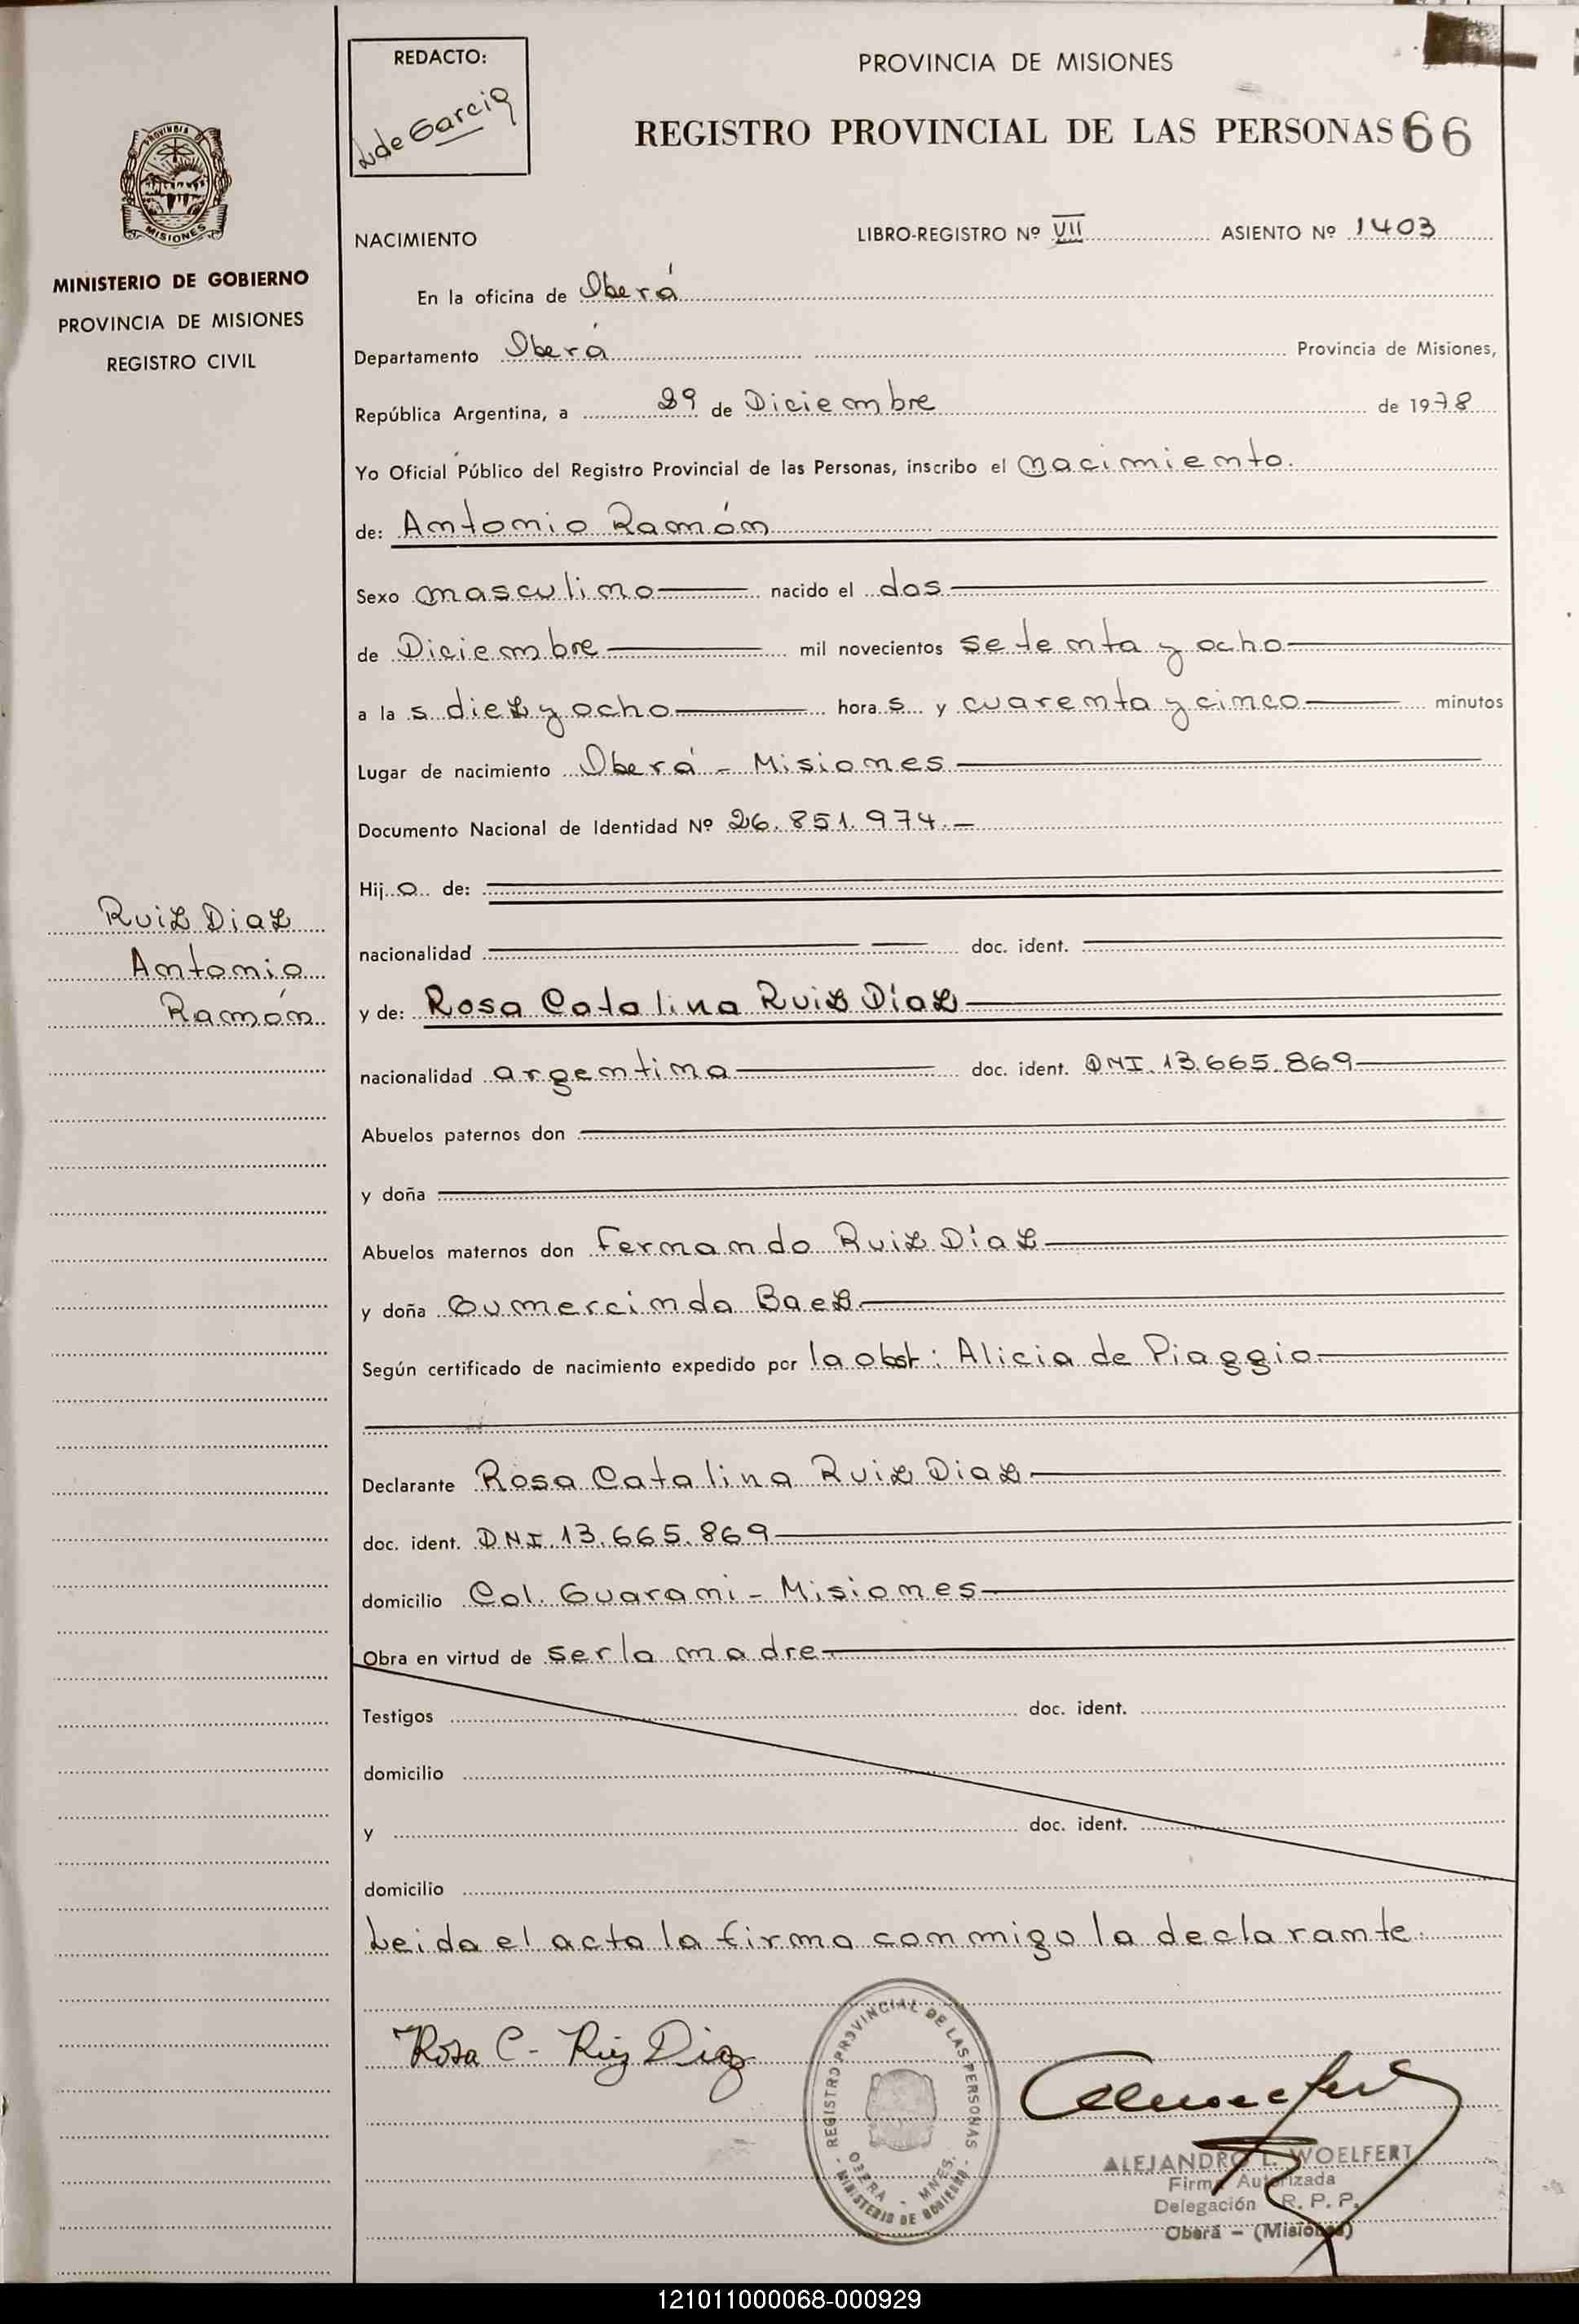 REDACTO:
L de Garcia
PROVINCIA DE MISIONES
REGISTRO PROVINCIAL DE LAS PERSONAS 66
PROVINCIA DE
MISIONES
MINISTERIO DE GOBIERNO
PROVINCIA DE MISIONES
REGISTRO CIVIL
NACIMIENTO LIBRO-REGISTRO Nº VII ASIENTO Nº 1403
En la oficina de Oberá
Departamento Oberá Provincia de Misiones,
República Argentina, a 29 de Diciembre de 1978
Yo Oficial Público del Registro Provincial de las Personas, inscribo el nacimiento.
de: Antonio Ramón
Sexo masculino nacido el dos
de Diciembre mil novecientos setenta y ocho
a las diez y ocho horas y cuarenta y cinco minutos
Lugar de nacimiento Oberá - Misiones
Documento Nacional de Identidad Nº 26.851.974.-
Hijo de:
nacionalidad doc. ident.
Ruiz Diaz
Antonio
Ramón
y de: Rosa Catalina Ruiz Díaz
nacionalidad argentina doc. ident. DNI. 13.665.869
Abuelos paternos don
y doña
Abuelos maternos don Fernando Ruiz Díaz
y doña Gumercinda Baez
Según certificado de nacimiento expedido por la obst: Alicia de Piaggio
Declarante Rosa Catalina Ruiz Diaz
doc. ident. DNI 13.665.869
domicilio Col. Guarani - Misiones
Obra en virtud de ser la madre
Testigos doc. ident.
domicilio
y doc. ident.
domicilio
Leida el acta la firma conmigo la declarante.
Rosa C- Ruiz Diaz
REGISTRO PROVINCIAL DE LAS PERSONAS
OBERA - MNES.
- MINISTERIO DE GOBIERNO -
ALEJANDRO L. WOELFERT
Firma Autorizada
Delegación R. P. P.
Oberá - (Misiones)
121011000068-000929